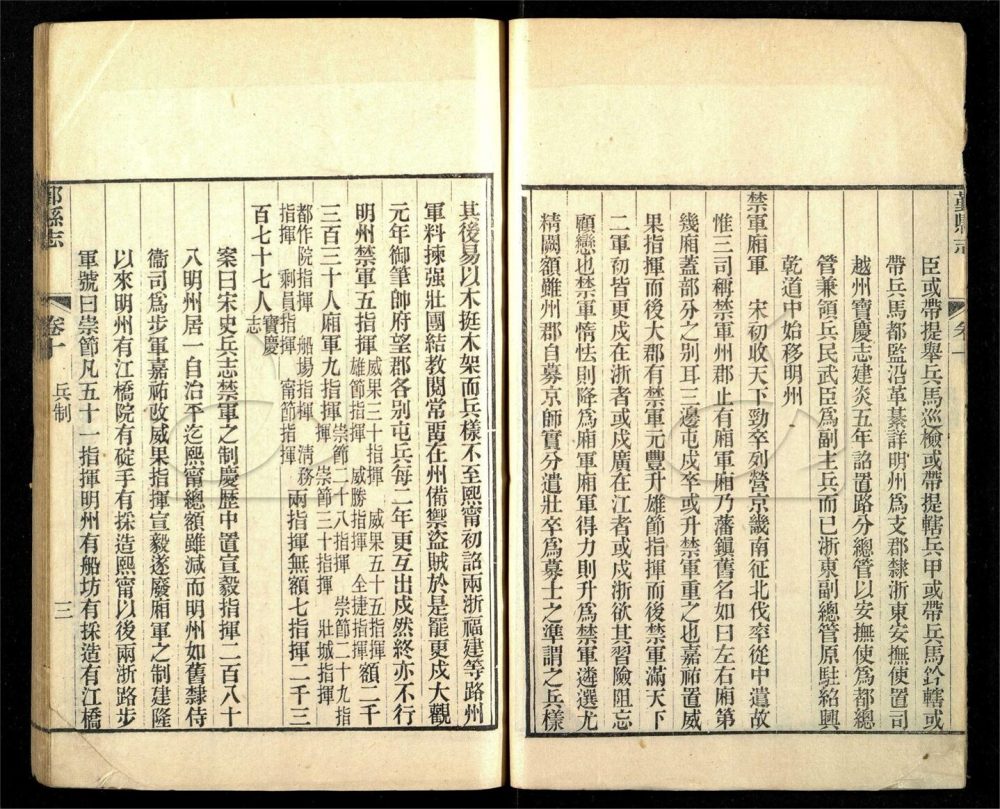 鄞縣志
卷十
臣或帶提舉兵馬巡檢或帶提轄兵甲或帶兵馬鈐轄或
帶兵馬都監沿革綦詳明州爲支郡隸浙東安撫使置司
越州寶慶志建炎五年詔置路分總管以安撫使爲都總
管兼領兵民武臣爲副主兵而已浙東副總管原駐紹興
乾道中始移明州
禁軍廂軍 宋初收天下勁卒列營京畿南征北伐率從中遣故
惟三司稱禁軍州郡止有廂軍廂乃藩鎭舊名如曰左右廂第
幾廂蓋部分之别耳三邊屯戍卒或升禁軍重之也嘉祐置威
果指揮而後大郡有禁軍元豐升雄節指揮而後禁軍滿天下
二軍初皆更戍在浙者或戍廣在江者或戍浙欲其習險阻忘
顧戀也禁軍惰怯則降爲廂軍廂軍得力則升爲禁軍遴選尤
精闕額雖州郡自募京師實分遣壯卒爲募士之準謂之兵樣
其後易以木挺木架而兵樣不至熙甯初詔兩浙福建等路州
軍料揀强壯團結教閱常畱在州備禦盜賊於是罷更戍大觀
元年御筆帥府望郡各别屯兵每二年更互出戍然終亦不行
明州禁軍五指揮 威果三十指揮 威果五十五指揮 雄節指揮 威勝指揮 全捷指揮 額二千
三百三十人廂軍九指揮 崇節二十八指揮 崇節二十九指揮 崇節三十指揮 壯城指揮
都作院指揮 船場指揮 清務指揮 剩員指揮 甯節指揮 兩指揮無額七指揮二千三
百七十七人 寶慶志
案曰宋史兵志禁軍之制慶歷中置宣毅指揮二百八十
八明州居一自治平迄熙甯總額雖減而明州如舊隸侍
衞司爲步軍嘉祐改威果指揮宣毅遂廢廂軍之制建隆
以來明州有江橋院有碇手有採造熙甯以後兩浙路步
軍號曰崇節凡五十一指揮明州有船坊有採造有江橋
鄞縣志
卷十 兵制
三